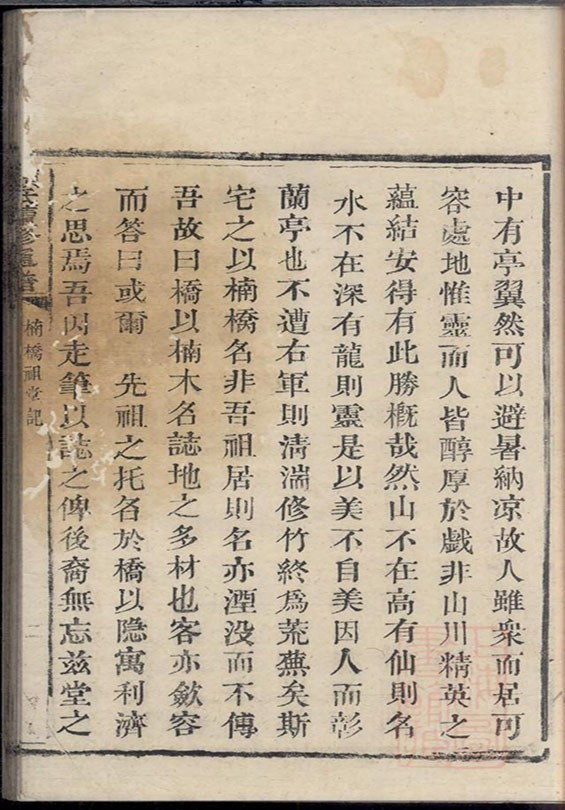 中有亭翼然可以避暑納凉故人雖衆而居可
容處地惟靈而人皆醇厚於戲非山川精英之
蘊結安得有此勝概哉然山不在高有仙則名
水不在深有龍則靈是以美不自美因人而彰
蘭亭也不遭右軍則清湍修竹終爲荒蕪矣斯
宅之以楠橋名非吾祖居則名亦湮没而不傳
吾故曰橋以楠木名誌地之多材也客亦斂容
而答曰或爾 先祖之托名於橋以隐寓利濟
之思焉吾因走筆以誌之俾後裔無忘兹堂之
氏續修宗譜
楠橋祖堂記
二